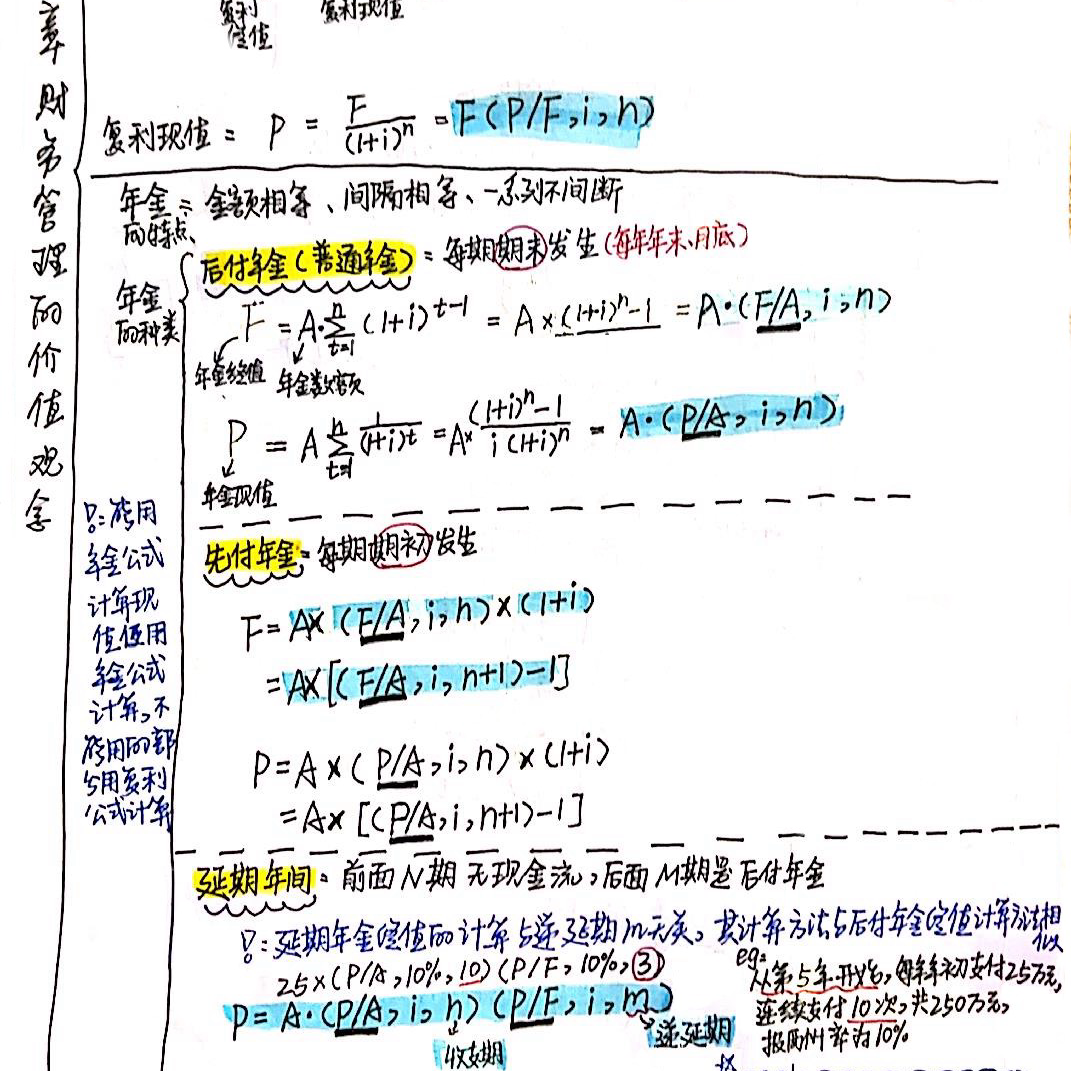 章财务管理的价值观念
复利
终值
复利现值
复利现值 = P = F/(1+i)^n = F(P/F,i,n)
年金 = 金额相等、间隔相等、一系列不间断
的特点
年金
的种类
后付年金(普通年金) = 每期期末发生(每年年末、月底)
F = A·∑(n, t=1)(1+i)^t-1 = A×(1+i)^n-1 = A·(F/A,i,n)
年金终值 年金数额
P = A∑(n, t=1) 1/(1+i)^t = A×(1+i)^n-1/i(1+i)^n = A·(P/A,i,n)
年金现值
先付年金 = 每期期初发生
F = A×(F/A,i,n)×(1+i)
= A×[(F/A,i,n+1)-1]
P = A×(P/A,i,n)×(1+i)
= A×[(P/A,i,n+1)-1]
能用
年金公式
计算现
值便用
年金公式
计算,不
能用的部
分用复利
公式计算
延期年间 = 前面N期无现金流,后面M期是后付年金
延期年金终值的计算与递延期m无关,其计算方法与后付年金终值计算方法相
似
25×(P/A,10%,10)(P/F,10%,3)
P = A·(P/A,i,n)(P/F,i,m)
收支期
递延期
eg:
从第5年开始,每年年初支付25万元,
连续支付10次,共250万元,